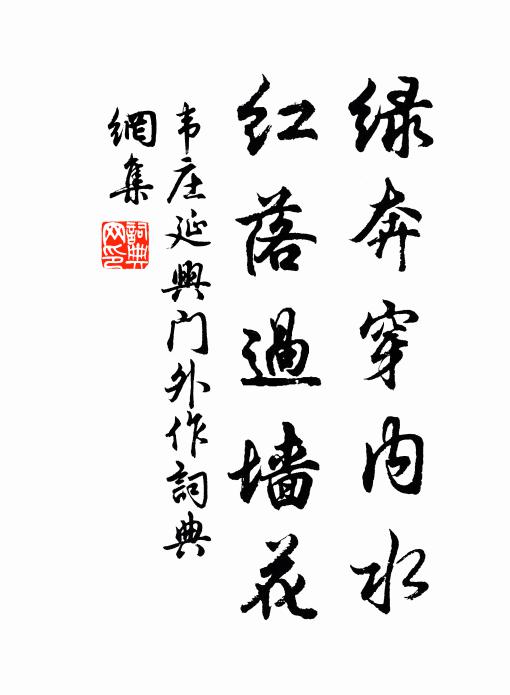 绿奔穿内水
红落過墙花
韦庄延興门外作詞典
網集
詞典
网印